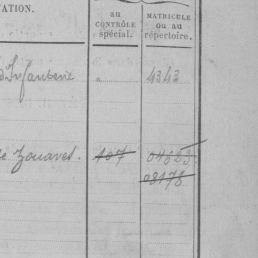 ATION.
au
CONTRÔLE
spécial.
MATRICULE
ou au
répertoire.
d'Infanterie " 4343
de Zouaves. 107 04623
08178